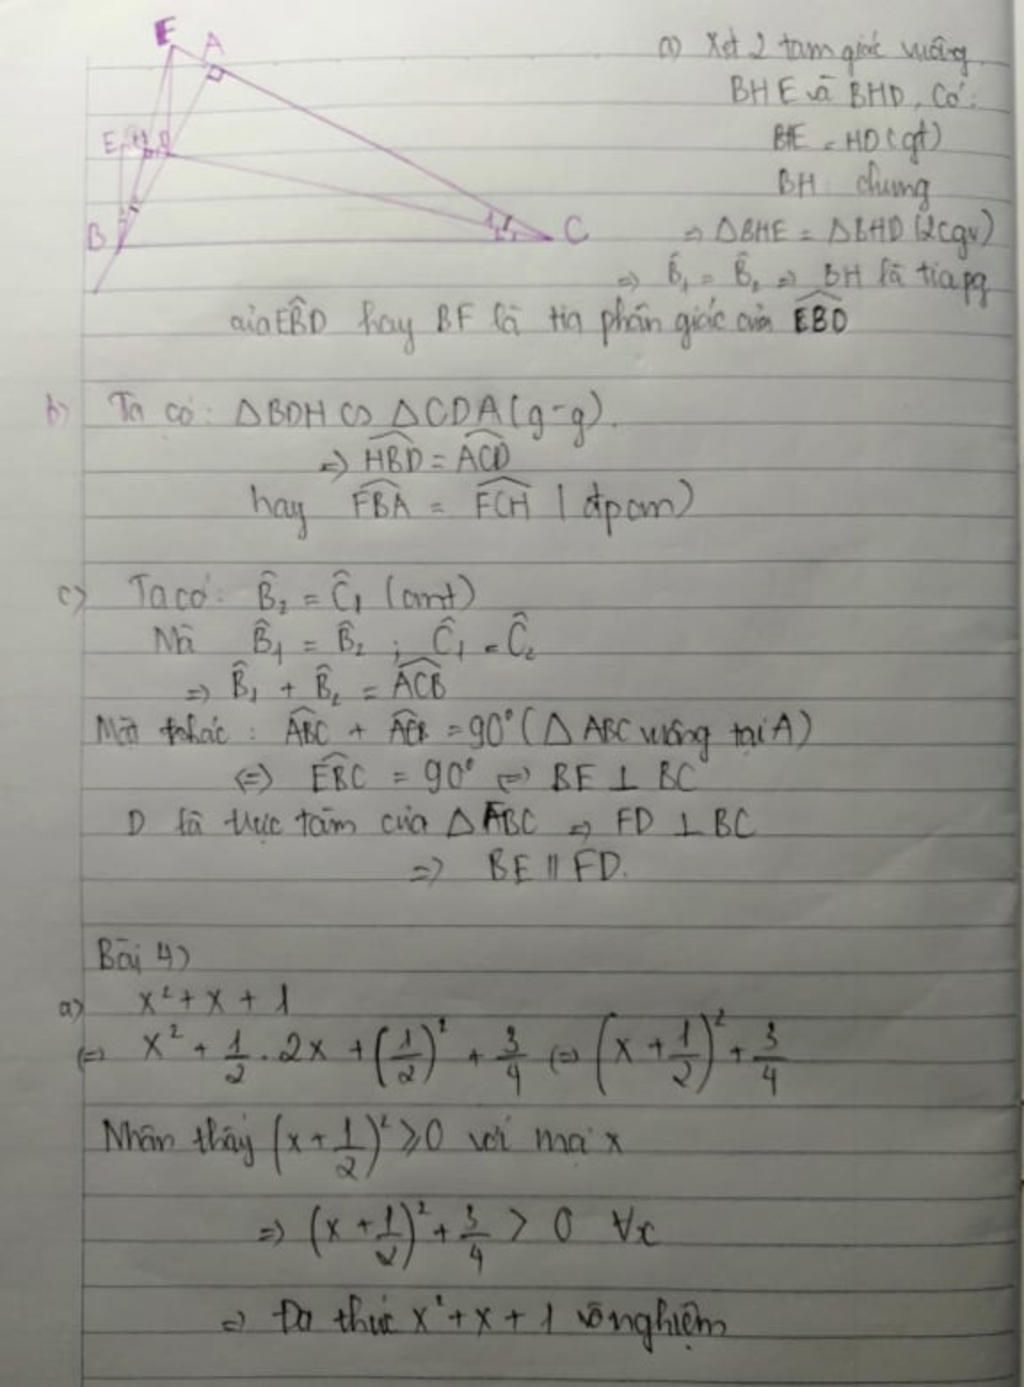 F
A
E
H
D
B
C
a) Xét 2 tam giác vuông
BHE và BHD, Có:
HE = HD (gt)
BH chung
⇒ ΔBHE = ΔBHD (2cgv)
⇒ B̂₁ = B̂₂ ⇒ BH là tia pg
của EBD hay BF là tia phân giác của EBD
b) Ta có: ΔBDH ∽ ΔCDA (g-g).
⇒ HBD = ACD
hay FBA = FCH (đpcm)
c) Ta có: B̂₂ = Ĉ₁ (cmt)
Mà B̂₁ = B̂₂ ; Ĉ₁ = Ĉ₂
⇒ B̂₁ + B̂₂ = ACB
Mặt khác: ABC + ACB = 90° (Δ ABC vuông tại A)
⇔ EBC = 90° ⇔ BE ⊥ BC
D là trực tâm của ΔFBC ⇒ FD ⊥ BC
⇒ BE ∥ FD.
Bài 4)
a) x² + x + 1
⇔ x² + 1/2 . 2x + (1/2)² + 3/4 ⇔ (x + 1/2)² + 3/4
Nhận thấy (x + 1/2)² ≥ 0 với mọi x
⇒ (x + 1/2)² + 3/4 > 0 ∀x
⇒ Đa thức x² + x + 1 vô nghiệm